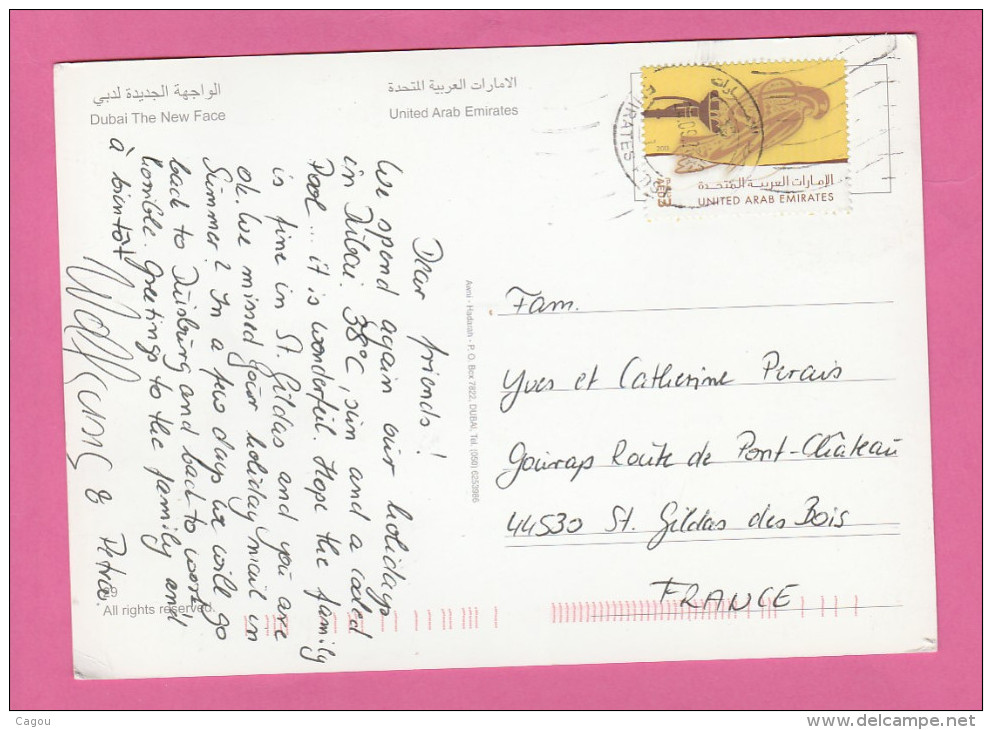 الواجهة الجديدة لدبي
Dubai The New Face
الامارات العربية المتحدة
United Arab Emirates
الإمارات العربية المتحدة
UNITED ARAB EMIRATES
AED 3
EMIRATES
Dear friends!
We spend again our holidays
in Dubai. 38°C, sun and a cooled
Pool... it is wonderful. Hope the family
is fine in St. Gildas and you are
ok. We missed your holiday mail in
Summer? In a few days we will go
back to Duisburg and back to work, so
horrible. Greetings to the family and
à bientôt
Wolfgang & Petra.
Awni - Hadarah - P. O. Box 7822, DUBAI, Tel. (050) 6253986
Fam.
Yves et Catherine Perais
Route de Pont-Château
44530 St. Gildas des Bois
FRANCE
All rights reserved.
Cagou
www.delcampe.net